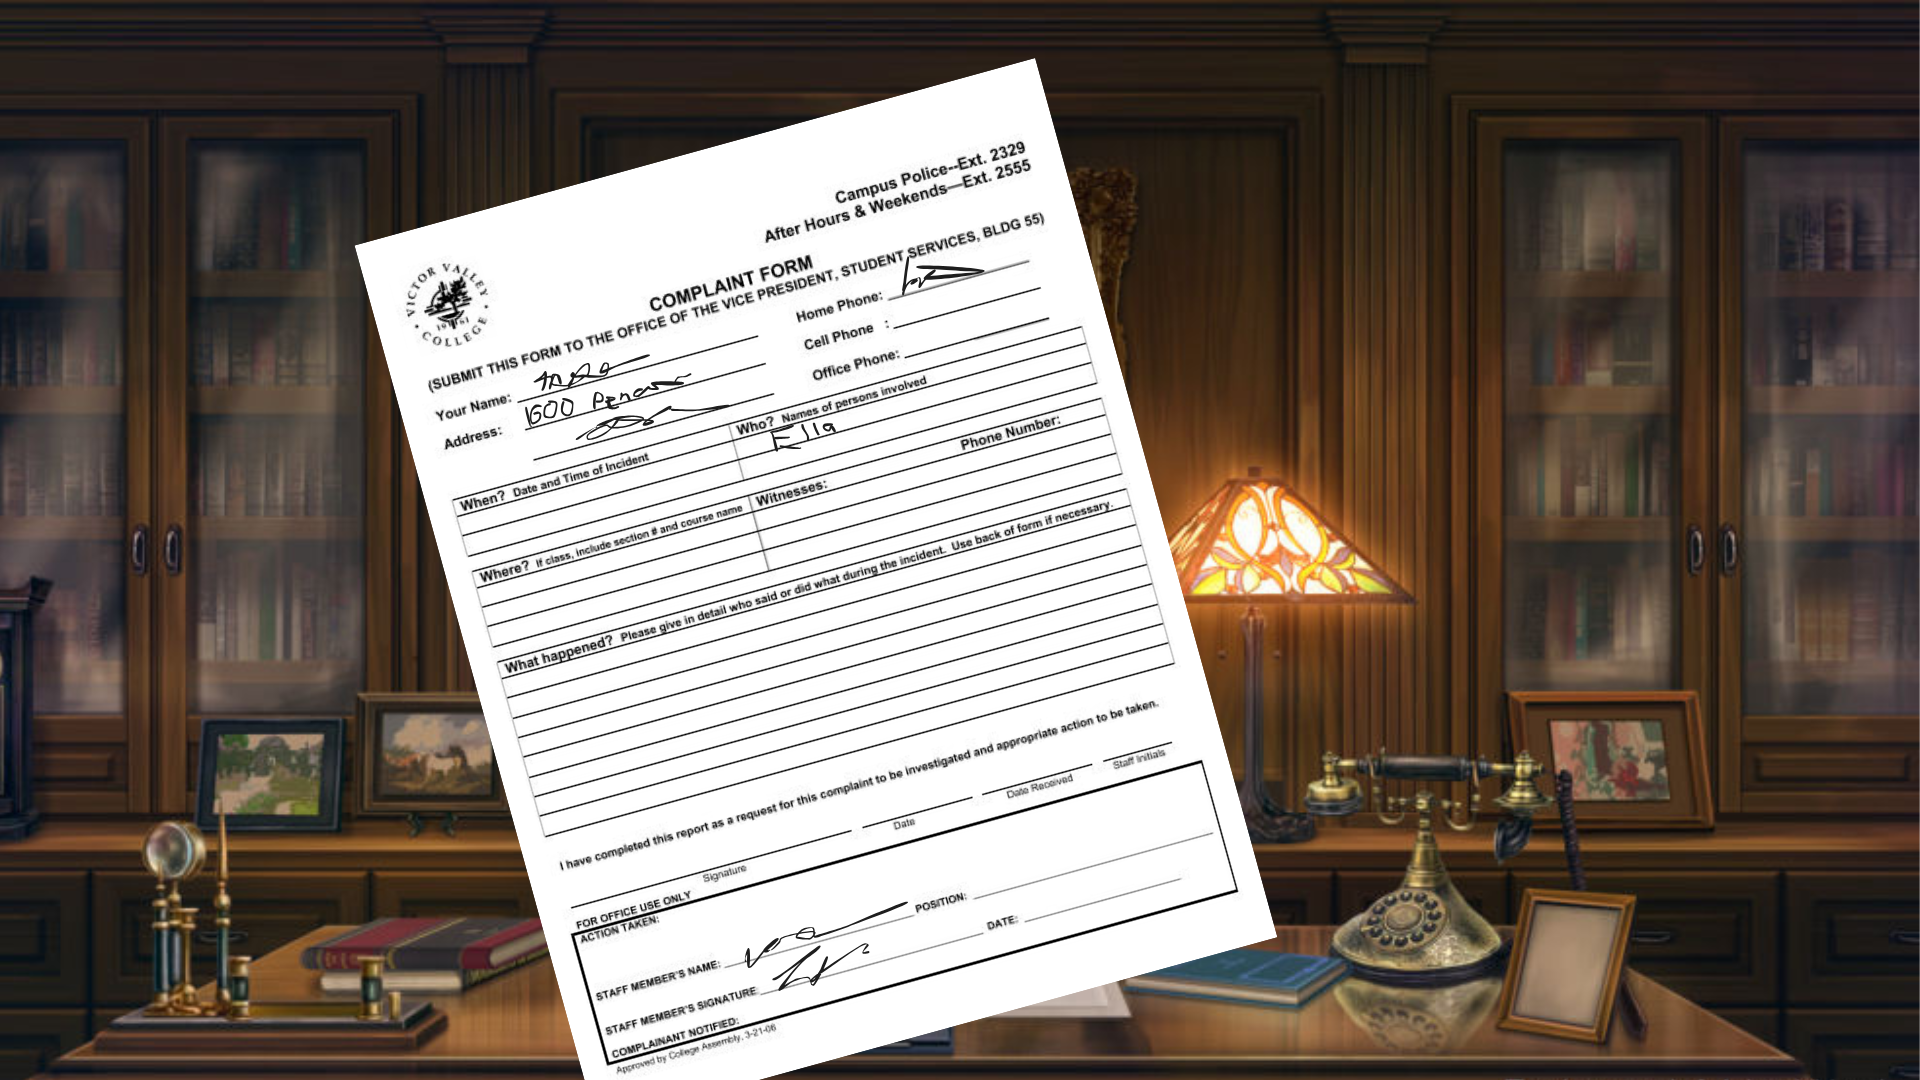 Campus Police--Ext. 2329
After Hours & Weekends—Ext. 2555
VICTOR VALLEY COLLEGE
COMPLAINT FORM
(SUBMIT THIS FORM TO THE OFFICE OF THE VICE PRESIDENT, STUDENT SERVICES, BLDG 55)
Your Name:
Home Phone:
Address:
Cell Phone :
Office Phone:
When? Date and Time of Incident
Who? Names of persons involved
Ella
Where? If class, include section # and course name
Witnesses: Phone Number:
What happened? Please give in detail who said or did what during the incident. Use back of form if necessary.
I have completed this report as a request for this complaint to be investigated and appropriate action to be taken.
Signature Date Date Received Staff Initials
FOR OFFICE USE ONLY
ACTION TAKEN:
STAFF MEMBER'S NAME: POSITION:
STAFF MEMBER'S SIGNATURE: DATE:
COMPLAINANT NOTIFIED:
Approved by College Assembly, 3-21-06